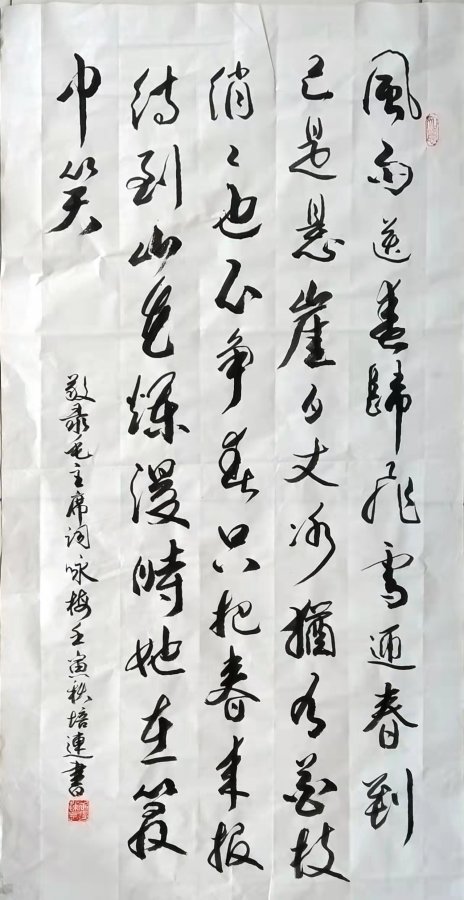 風雨送春歸飛雪迎春到
已是悬崖百丈冰猶有花枝
俏々也不争春只把春来报
待到山花爛漫時她在叢
中笑
敬录毛主席词咏梅壬寅秋培連書